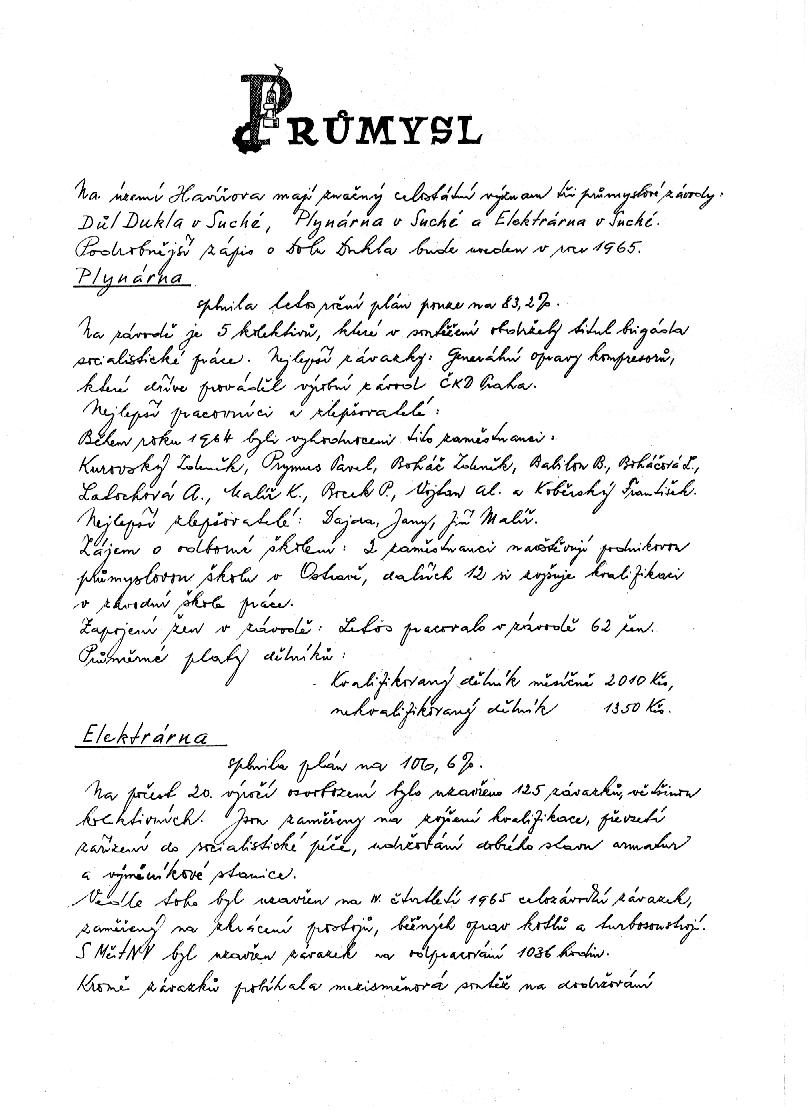 PRŮMYSL
Na území Havířova mají značný celostátní význam tři průmyslové závody:
Důl Dukla v Suché, Plynárna v Suché a Elektrárna v Suché.
Podrobnější zápis o Dole Dukla bude uveden v roce 1965.
Plynárna
splnila letos roční plán pouze na 83,2%.
Na závodě je 5 kolektivů, které v soutěžení obdržely titul brigáda
socialistické práce. Nejlepší závazky: Generální opravy kompresorů,
které dříve prováděl výrobní závod ČKD Praha.
Nejlepší pracovníci a zlepšovatelé:
Během roku 1964 byli vyhodnoceni tito zaměstnanci:
Kurovský Zdeněk, Prymus Pavel, Boháč Zdeněk, Babilon B., Boháčová L.,
Latochová A., Malíř K., Bocek P., Vojtan Al. a Koběrský František.
Nejlepší zlepšovatelé: Dajda, Jany, Jiří Malíř.
Zájem o odborné školení: 2 zaměstnanci navštěvují podnikovou
průmyslovou školu v Ostravě, dalších 12 si zvyšuje kvalifikaci
v závodní škole práce.
Zapojení žen v závodě: Letos pracovalo v závodě 62 žen.
Průměrné platy dělníků:
Kvalifikovaný dělník měsíčně 2010 Kčs,
nekvalifikovaný dělník 1350 Kčs.
Elektrárna
splnila plán na 106,6%.
Na počest 20. výročí osvobození bylo uzavřeno 125 závazků, většinou
kolektivních. Jsou zaměřeny na zvýšení kvalifikace, převzetí
zařízení do socialistické péče, udržování dobrého stavu armatur
a výměníkové stanice.
Vedle toho byl uzavřen na IV. čtvrtletí 1965 celozávodní závazek,
zaměřený na zkrácení postojů, běžných oprav kotlů a turbosoustrojí.
S MěstNV byl uzavřen závazek na odpracování 1036 hodin.
Kromě závazků probíhala mezisměnová soutěž na dodržování